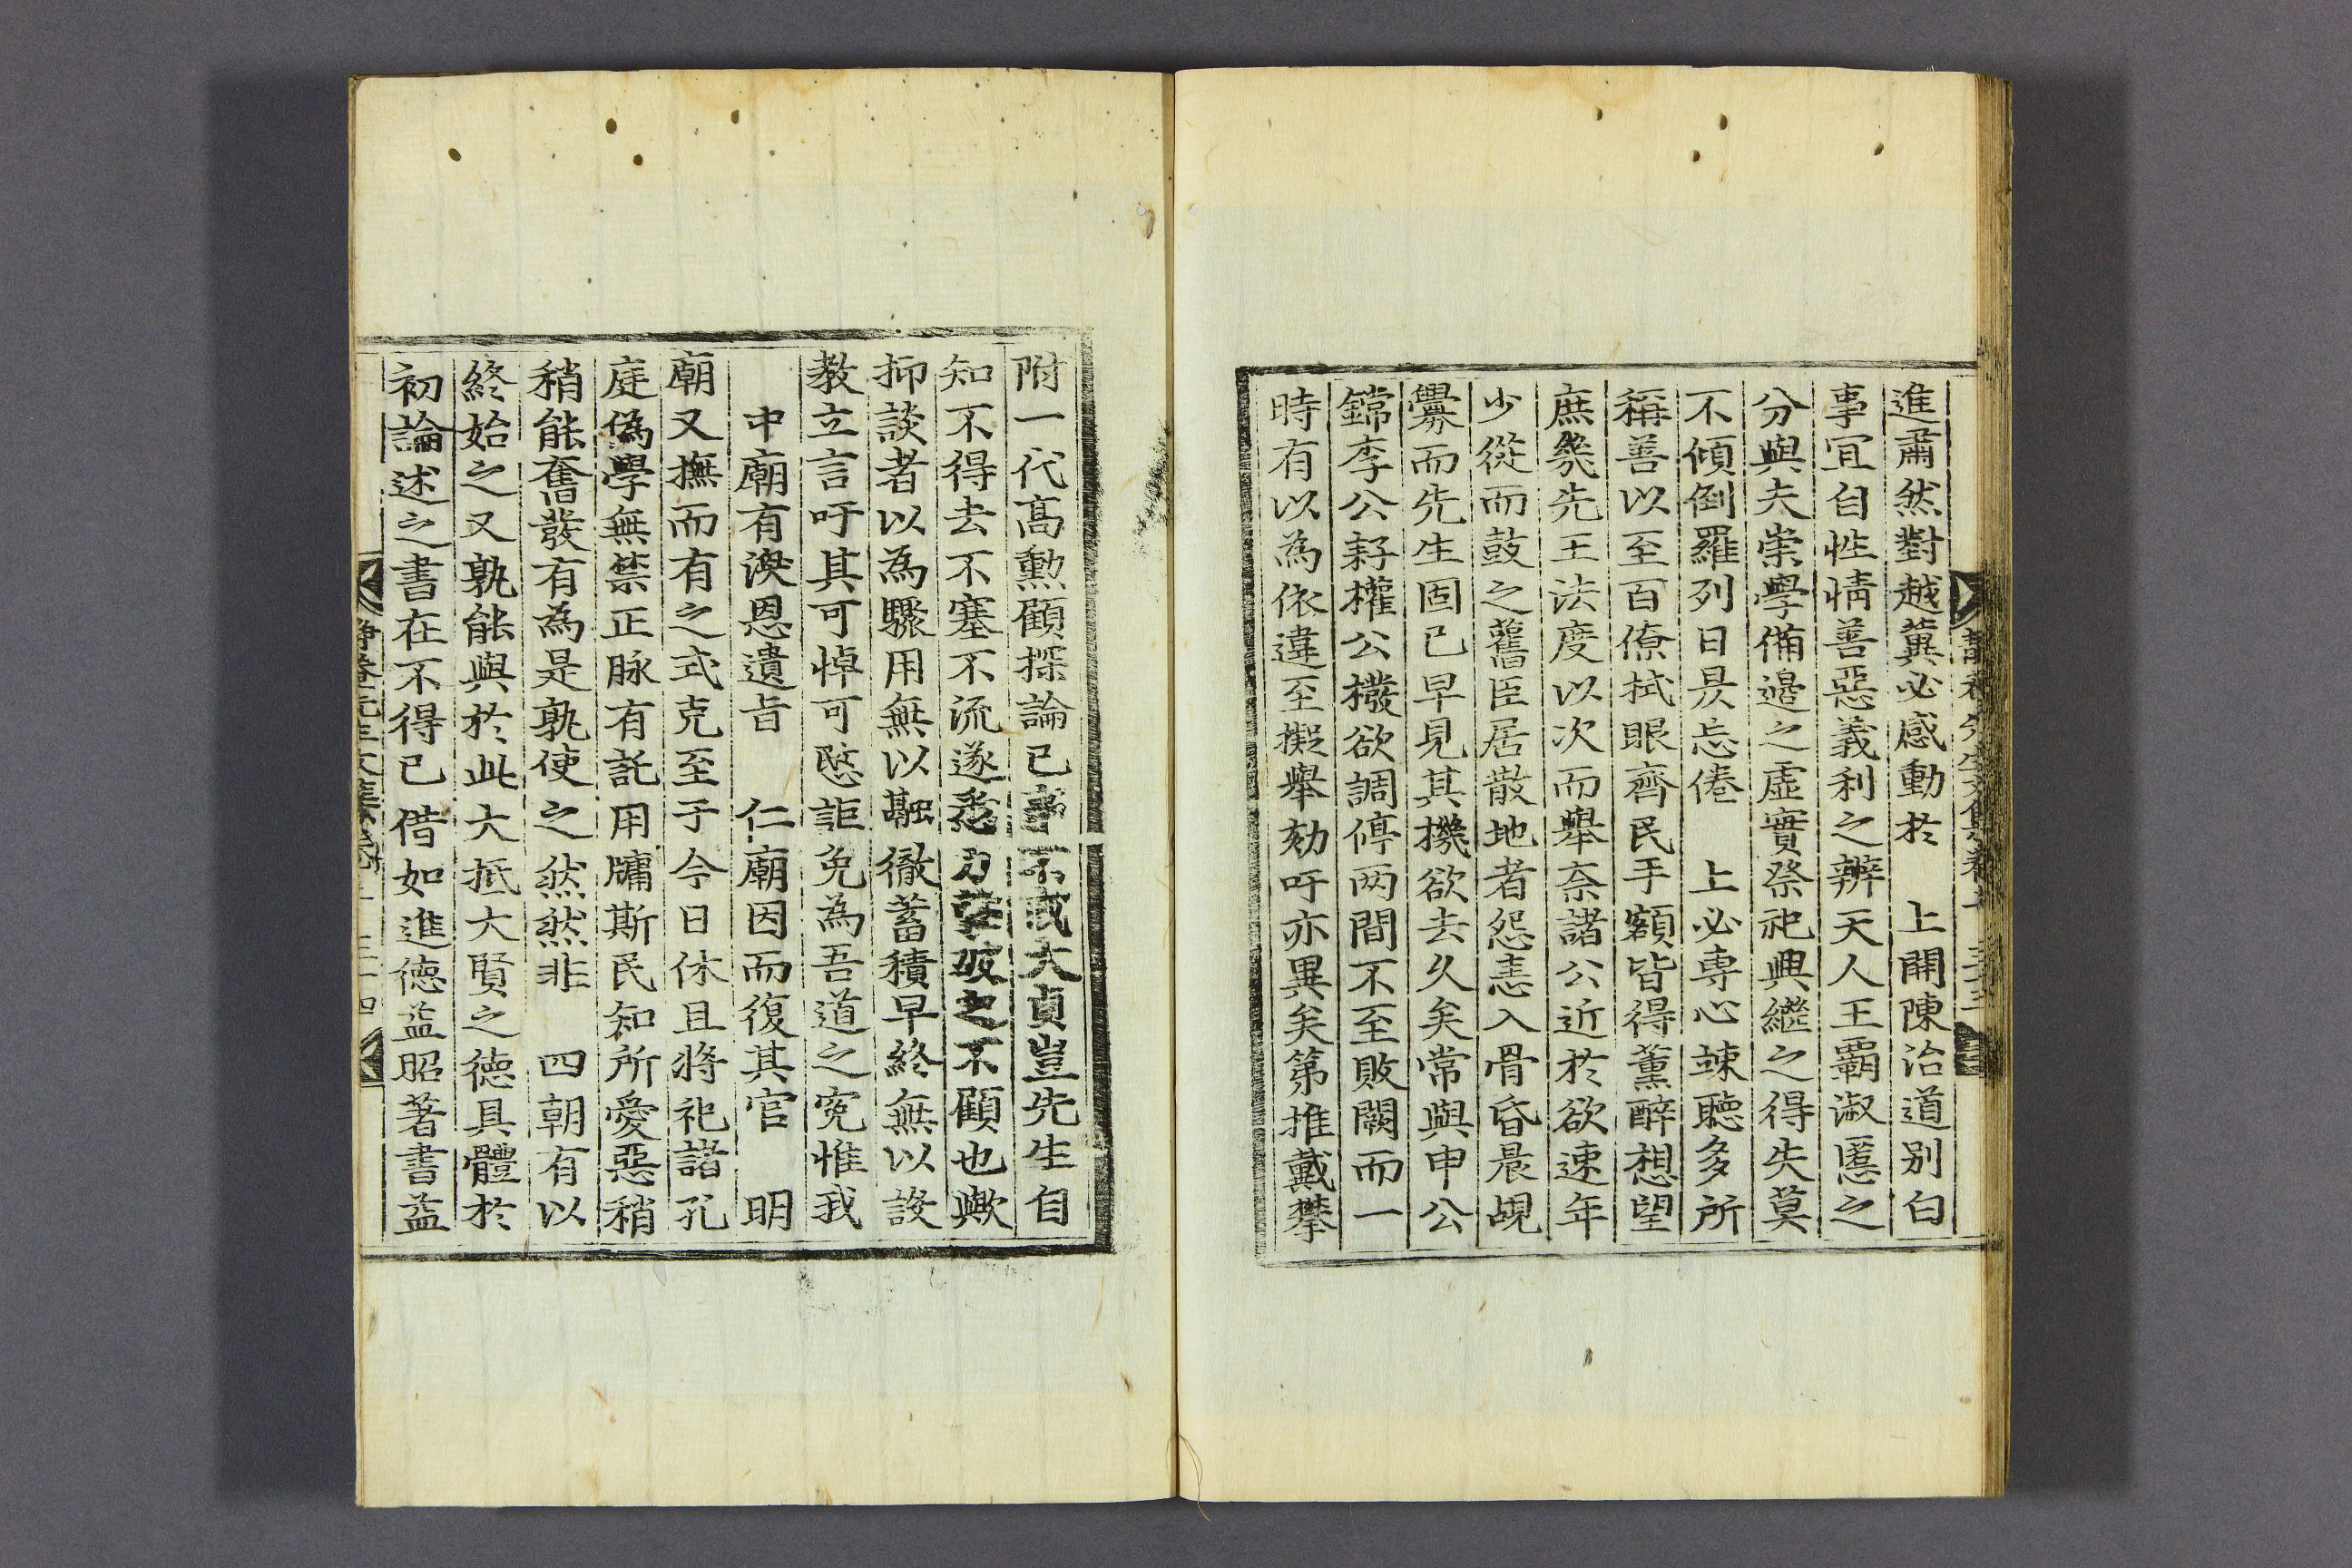 進肅然對越冀必感動於　上開陳治道別白
事宜自性情善惡義利之辨天人王霸淑慝之
分與夫崇學備邊之虛實祭祀興繼之得失莫
不傾倒羅列日昃忘倦　上必專心竦聽多所
稱善以至百僚拭眼齊民手額皆得薰醉想望
庶幾先王法度以次而擧奈諸公近於欲速年
少從而鼓之舊臣居散地者怨恚入骨昏晨覘
釁而先生固已早見其機欲去久矣常與申公
鏛李公耔權公橃欲調停两間不至敗闕而一
時有以為依違至擬擧劾吁亦異矣第推戴攀
附一代高勳顧採論已事不或大貞豈先生自
知不得去不塞不流遂悉力擊破之不顧也歟
抑談者以為驟用無以融徹蓄積早終無以設
教立言吁其可悼可愍詎免為吾道之寃惟我
中廟有渙恩遺旨　仁廟因而復其官　明
廟又撫而有之式克至于今日休且將祀諸孔
庭偽學無禁正脉有託用牖斯民知所愛惡稍
稍能奮發有為是孰使之然然非　四朝有以
終始之又孰能與於此大抵大賢之德具體於
初論述之書在不得已借如進德益昭著書益
靜菴先生文集卷
三十四